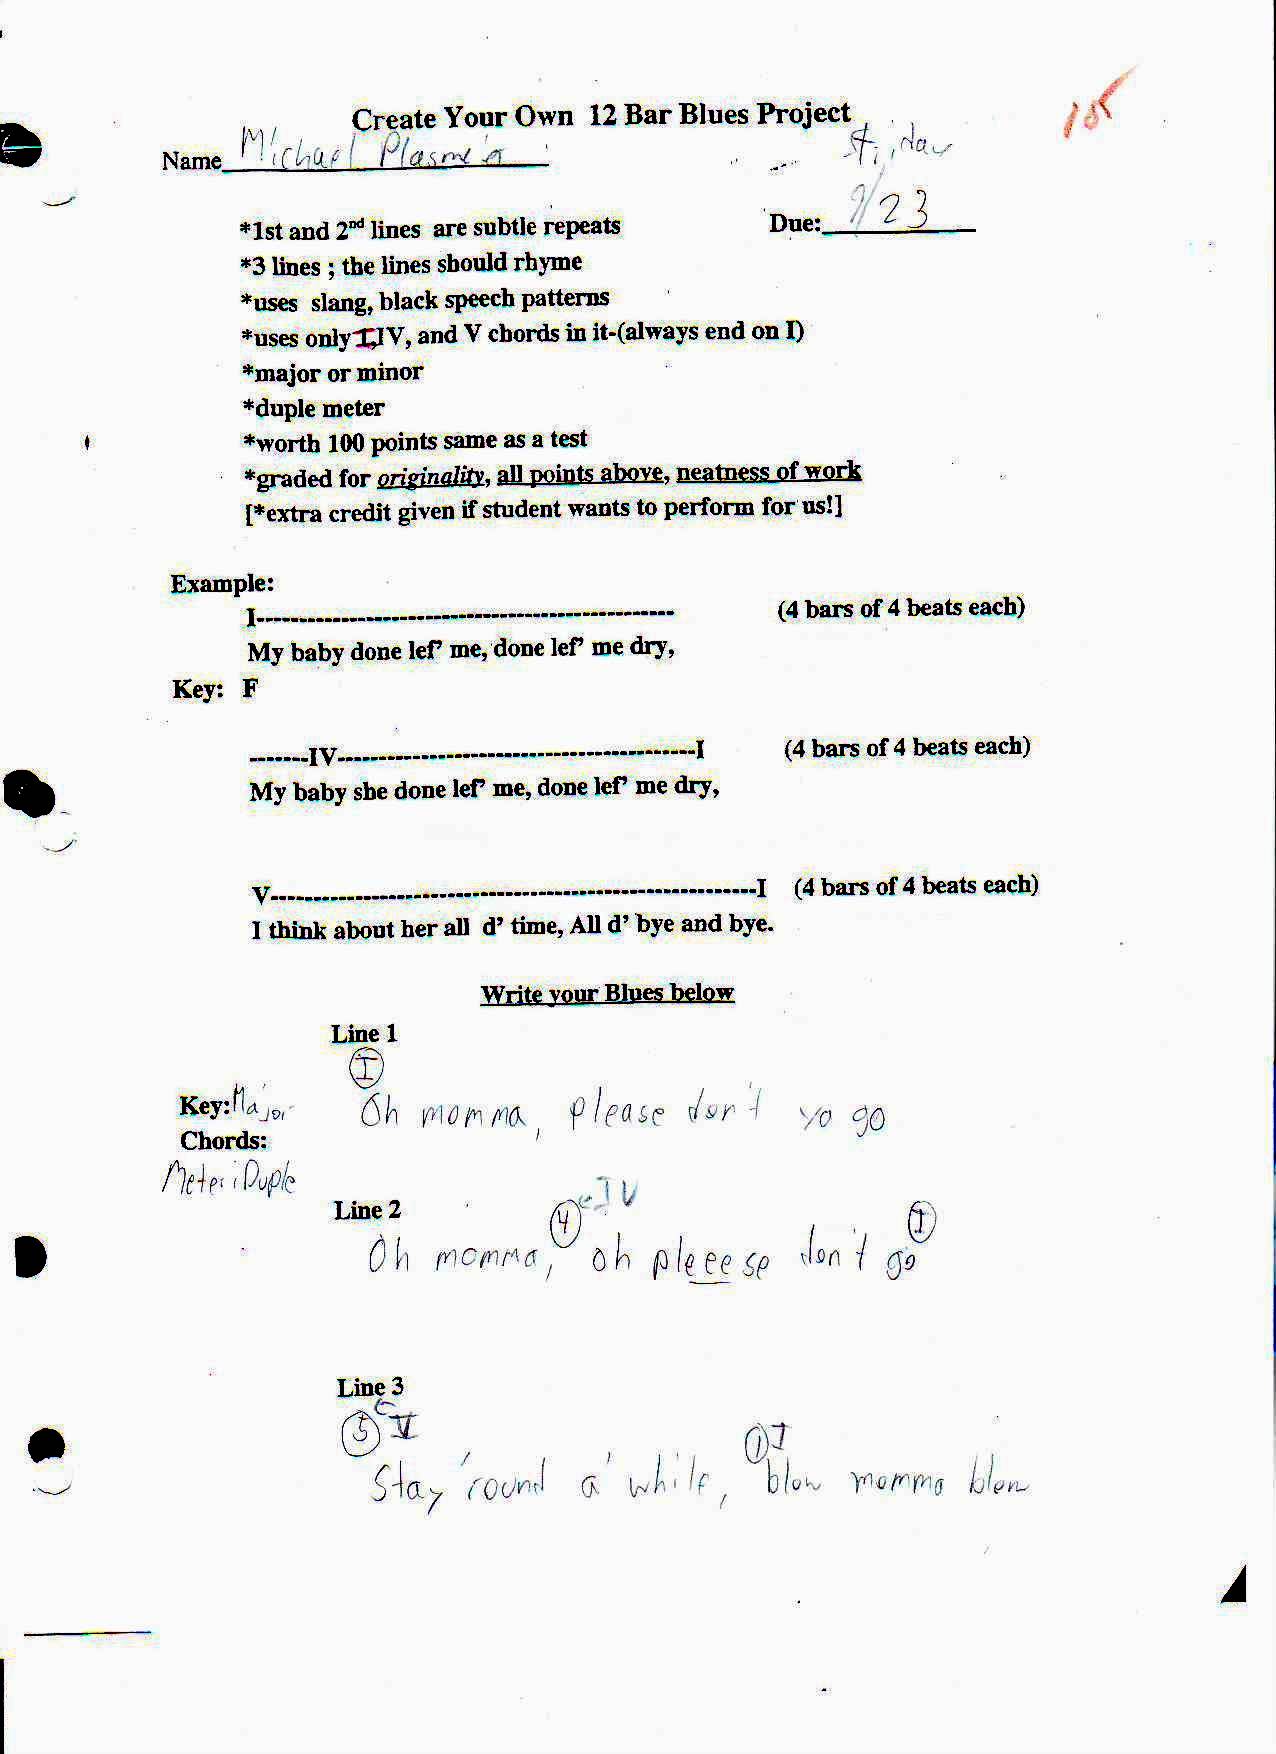 Create Your Own 12 Bar Blues Project
Name Michael Plasmeia
Due: 9/23
*1st and 2nd lines are subtle repeats
*3 lines ; the lines should rhyme
*uses slang, black speech patterns
*uses only I,IV, and V chords in it-(always end on I)
*major or minor
*duple meter
*worth 100 points same as a test
*graded for originality, all points above, neatness of work
[*extra credit given if student wants to perform for us!]
Example:
I-------------------------------------------------- (4 bars of 4 beats each)
My baby done lef' me, done lef' me dry,
Key: F
-------IV------------------------------------------I (4 bars of 4 beats each)
My baby she done lef' me, done lef' me dry,
V----------------------------------------------------------I (4 bars of 4 beats each)
I think about her all d' time, All d' bye and bye.
Write your Blues below
Line 1
I
Key: Major Oh momma, please don't yo go
Chords:
Meter: Duple
Line 2
4 IV I
Oh momma, oh pleeese don't go
Line 3
5 V 1 I
Stay 'round a' while, blow momma blow